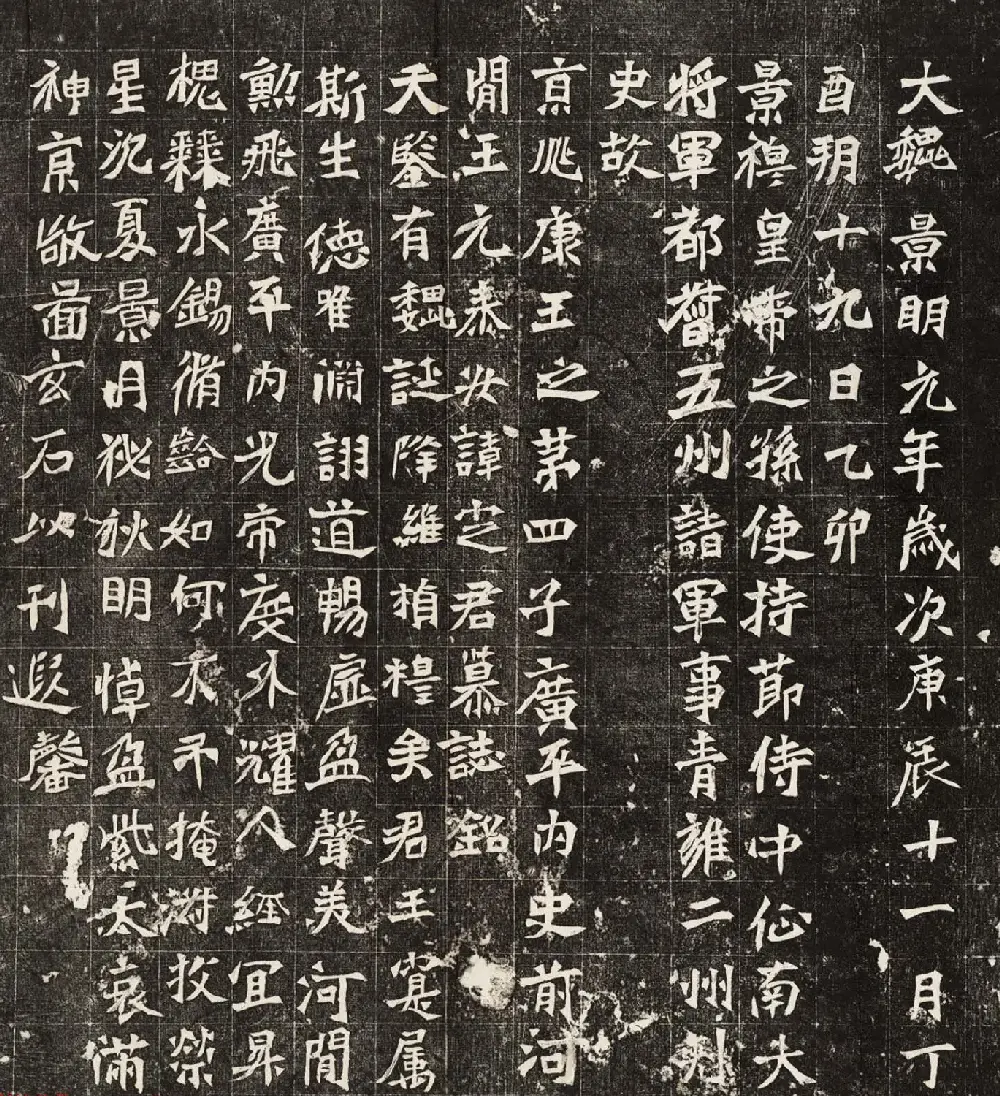 大魏景明元年歲次庚辰十一月丁
酉朔十九日乙卯
景穆皇帝之孫使持節侍中征南大
將軍都督五州諸軍事青雍二州刺
史故
京兆康王之第四子廣平内史前河
間王元泰安諱定君墓誌銘
天鑒有魏誕降維楨糧矣君王寔属
斯生德唯渊詡道暢虛盈聲美河間
勲飛廣平内光帝度外耀人經宜昇
槐棘永錫脩齡如何不弔掩浒攸榮
星沉夏景月祕秋明悼盈紫天哀滿
神京敬啚玄石以刊遐馨